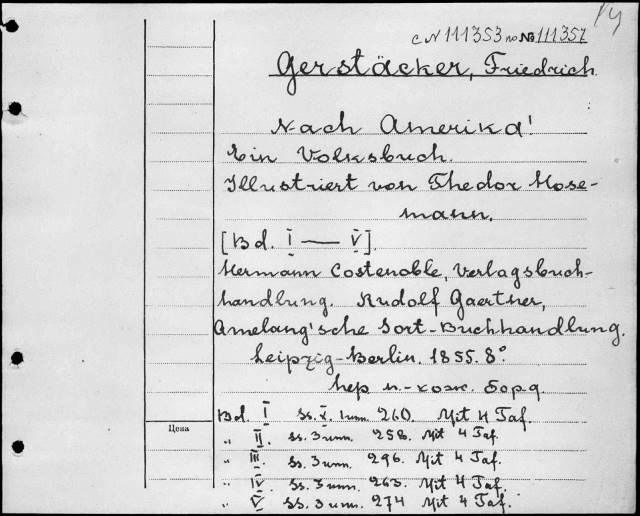 14
с № 111353 по № 111357
Gerstäcker, Friedrich.
Nach Amerika!
Ein Volksbuch.
Illustriert von Thedor Hose-
mann.
[Bd. I — V].
Hermann Costenoble, Verlagsbuch-
handlung. Rudolf Gaertner,
Amelang'sche Sort-Buchhandlung.
Leipzig-Berlin. 1855. 8°
пер п.-кож. борд
Bd. I SS. X. 1 unn. 260. Mit 4 Taf.
Цена
„ II. SS. 3 unn. 258. Mit 4 Taf.
„ III. SS. 3 unn. 296. Mit 4 Taf.
„ IV SS. 3 unn. 263. Mit 4 Taf.
„ V SS. 3 unn. 274 Mit 4 Taf.